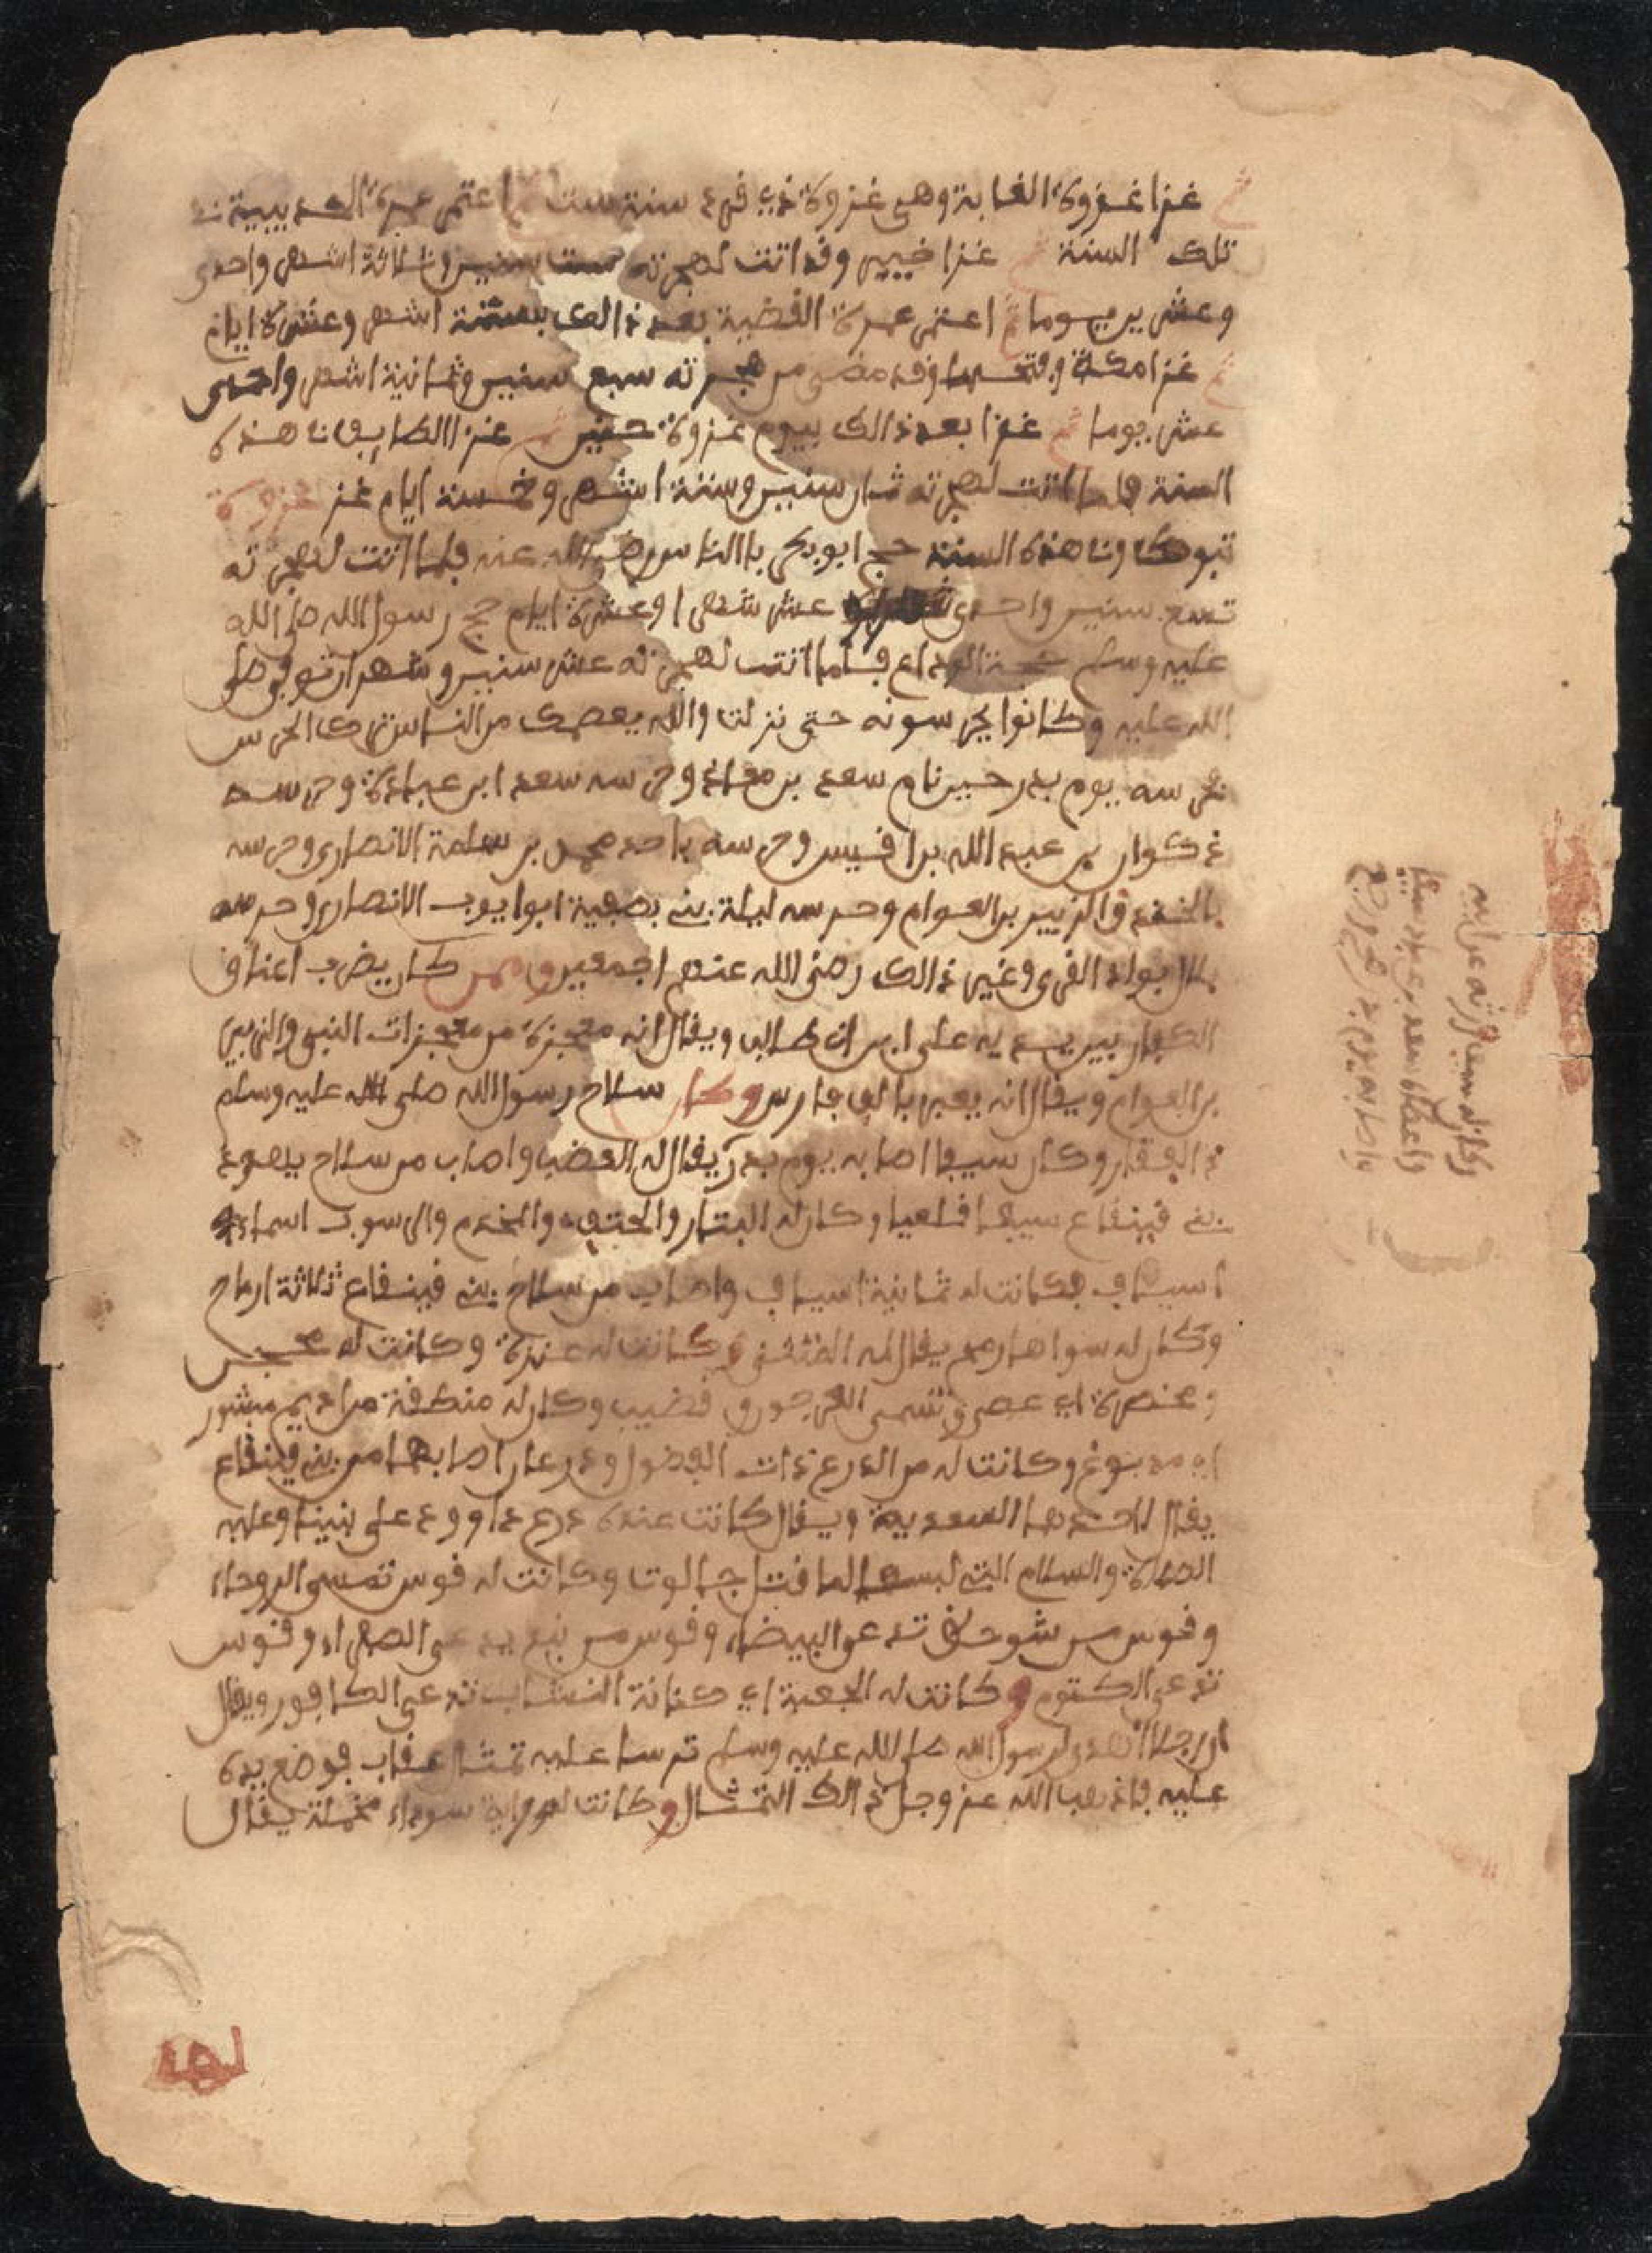 ثم غزا غزوة الغابة وهي غزوة ذي قرد سنة ست ثم اعتمر عمرة الحديبية في
تلك السنة ثم غزا خيبر وقد اتت لهجرته ست سنين وثلاثة اشهر واحدى
وعشرين يوما ثم اعتمر عمرة القضية بعد ذالك بستة اشهر وعشرة ايام
ثم غزا مكة وفتحها وقد مضى من هجرته سبع سنين وثمانية اشهر واحدى
عشر يوما ثم غزا بعد ذالك بيوم غزوة حنين ثم غزا الطايف في هذه
السنة فلما اتت لهجرته ثمان سنين وستة اشهر وخمسة ايام غز غزوة
تبوك وفي هذه السنة حج ابو بكر بالناس رضي الله عنه فلما اتت لهجرته
تسع سنين واحدى عشر شهرا وعشرة ايام حج رسول الله صلى الله
عليه وسلم حجة الوداع فلما اتت لهجرته عشر سنين وشهران توفي صلى
الله عليه وكانوا يحرسونه حتى نزلت والله يعصمك من الناس ترك الحرس
حرسه يوم بدر حين نام سعد بن معاذ وحرسه سعد ابن عبادة وحرسه
ذكوان بن عبد الله بن افيس وحرسه باحد محمد بن سلمة الانصاري وحرسه
بالخندق الزبير بن العوام وحرسه ليلة بني بصفية ابوا يوب الانصاري وحرسه
بلال بواد القرى وغير ذالك رضي الله عنهم اجمعين وممن كان يضرب اعناق
الكفار بين يديه علي ابن ابي طالب ويقال انه معجزة من معجزات النبي والزبير
بن العوام ويقال انه يعبر بالف فارس وكان سلاح رسول الله صلى الله عليه وسلم
ذا الفقار وكان سيفا اصابه يوم بدر يقال له العضب واصاب من سلاح يهود
بني قينقاع سيفا قلعيا وكان له البتار والحتف والمخدم والرسوب اسماء
اسياف فكانت له ثمانية اسياف واصاب من سلاح بني قينقاع ثلاثة ارماح
وكان له سواها رمح يقال له المثنى وكانت له عنزة وكانت له محجن
ومخصرة اي عصى وتسمى العرجون وقضيب وكان له منطقة من اديم مبشور
اي مدبوغ وكانت له من الدرع ذات الفضول ودرعان اصابهما من بني قينقاع
يقال لاحدهما السعدية ويقال كانت عنده درع داوود على نبينا وعليه
الصلاة والسلام التي لبسها لما قتل جالوت وكانت له قوس تمسى الروحاء
وقوس من شوحط تدعى البيضاء وقوس من نبع تدعى الصفراء وقوس
تدعى الكتوم وكانت له الجعبة اي كنانة النشاب تدعى الكافور ويقال
ان رجلا اهدى لرسول الله صلى الله عليه وسلم ترسا عليه تمثال عقاب فوضع يده
عليه فاذهب الله عز وجل ذالك التمثال وكانت له راية سوداء مخملة يقال
لها
وكان له سيف ورثه عن ابيه
واعطاه سعد بن عبادة سيفا
واصابه يوم بدر